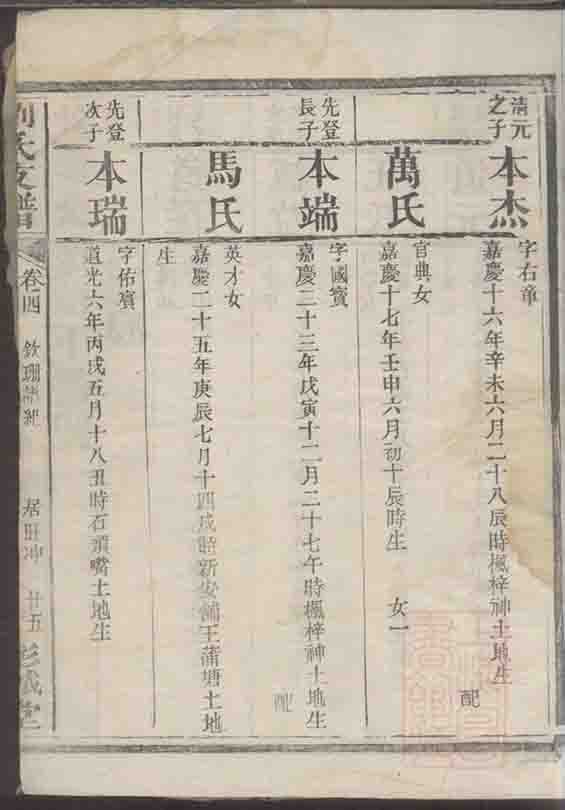 清元
之子
本杰
字右章
嘉慶十六年辛未六月二十八辰時楓梓神土地生
配
萬氏
官典女
嘉慶十七年壬申六月初十辰時生 女一
先登
長子
本端
字國賓
嘉慶二十三年戊寅十二月二十七午時楓梓神土地生
配
馬氏
英才女
嘉慶二十五年庚辰七月十四戌時新安舖王蒲塘土地
生
先登
次子
本瑞
字佑賓
道光六年丙戌五月十八丑時石頭嘴土地生
劉氏支譜
卷四
欽珊
居旺冲
廿五
彭城堂